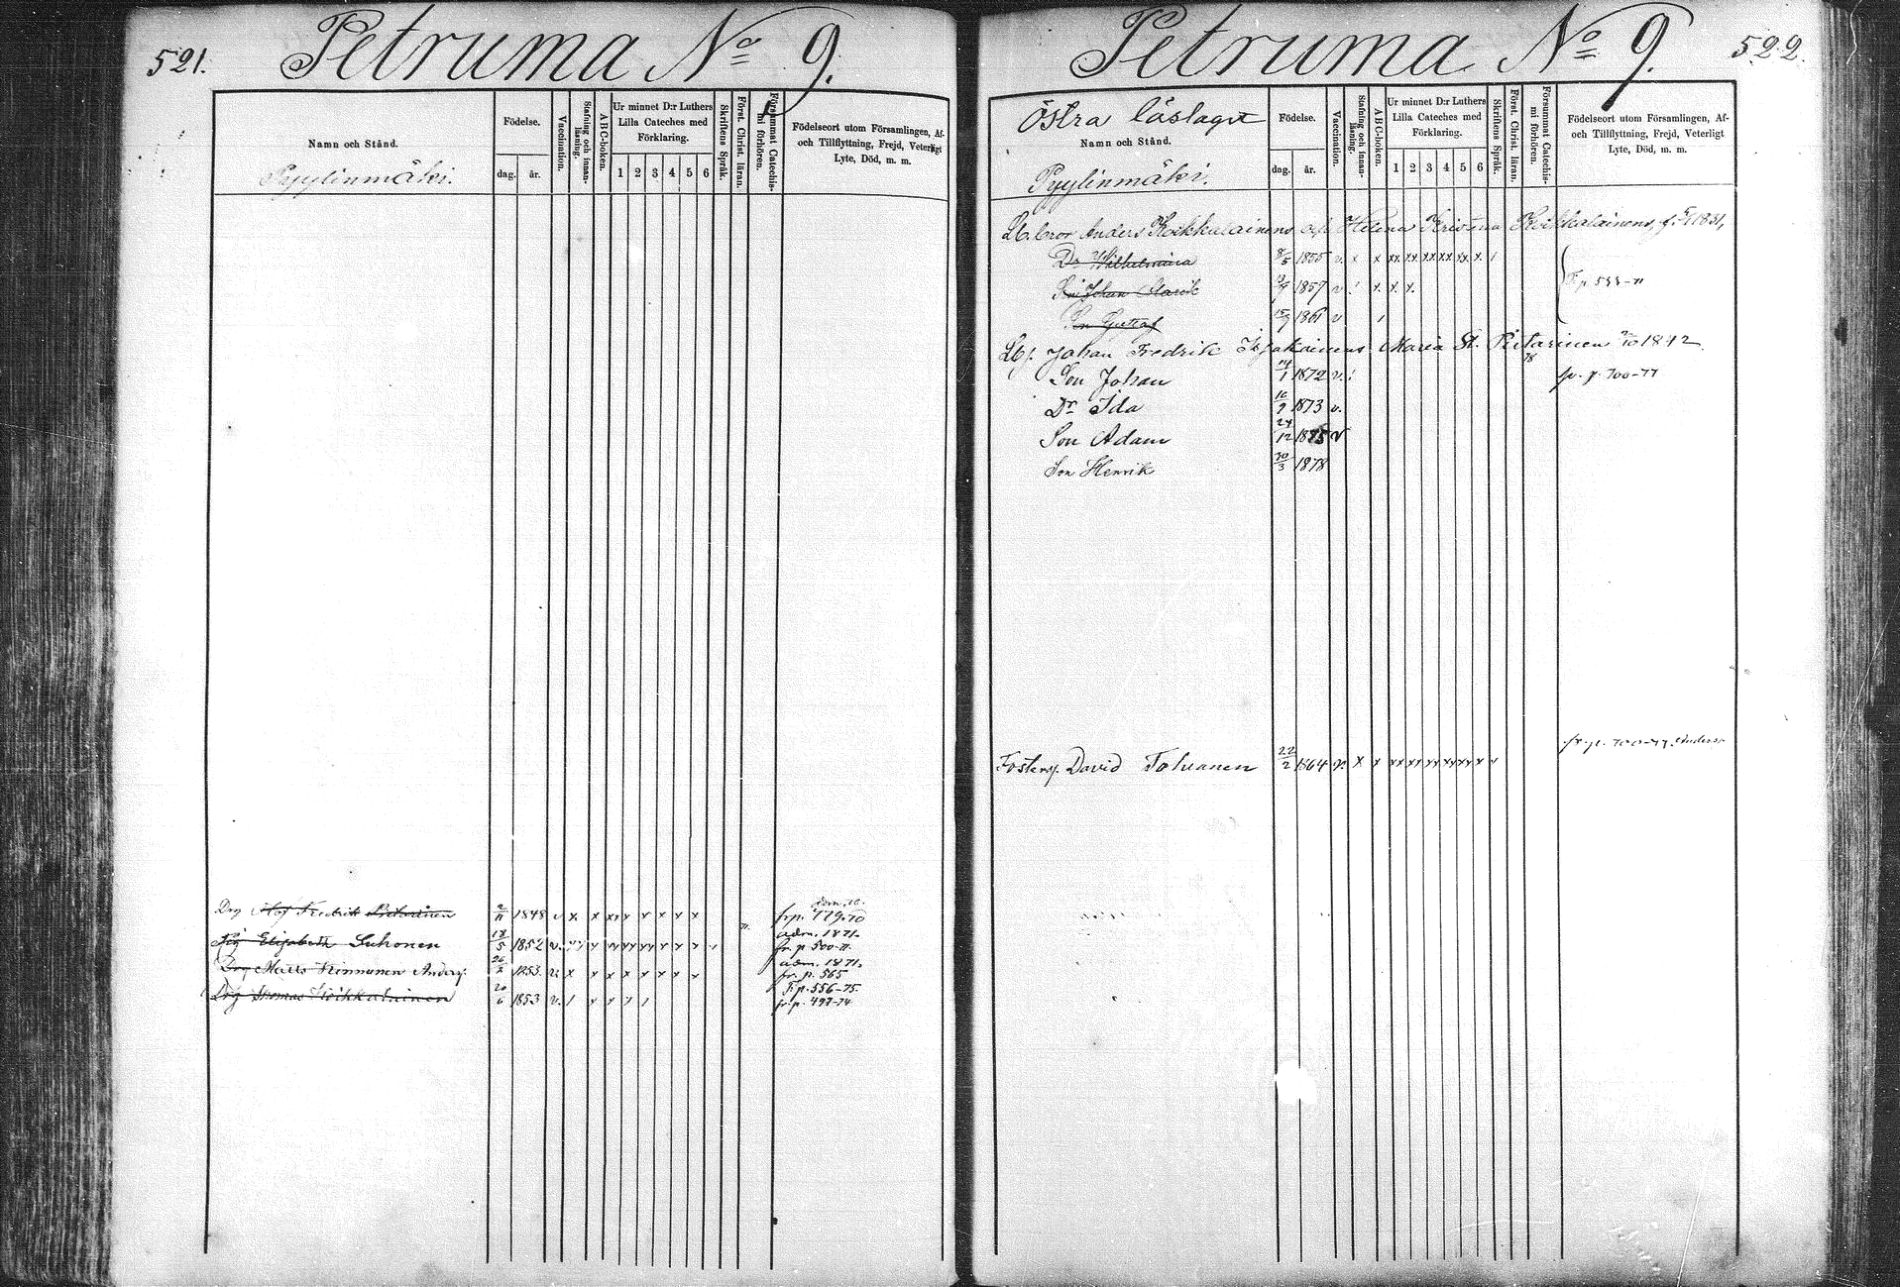 521.
Petruma No 9.
Namn och Stånd.
Pyylinmäki.
Födelse.
dag.
år.
Vaccination.
Stafning och innan-
läsning.
ABC-boken.
Ur minnet D:r Luthers
Lilla Cateches med
Förklaring.
1 2 3 4 5 6
Skriftens Språk.
Först. Christ. läran.
Försummat Catechis-
mi förhören.
Födelseort utom Församlingen, Af-
och Tillflyttning, Frejd, Veterligt
Lyte, Död, m. m.
Drg Olof Fredrik 1848 v x x
fr p. 779-70
adm. 1871.
Pig Elizabeth Suhonen 18/5 1852 v.
fr. p. 500-71
adm. 1871.
Drg Matts Kinnunen Anders. 26/2 1853 v. x x x x x x x x
fr. p. 565
T. p. 556-75.
Drg Thomas Koikkalainen 20/6 1853 v.
fr. p. 497-74
Petruma No 9.
522.
Östra läslaget
Namn och Stånd.
Pyylinmäki.
Födelse.
dag.
år.
Vaccination.
Stafning och innan-
läsning.
ABC-boken.
Ur minnet D:r Luthers
Lilla Cateches med
Förklaring.
1 2 3 4 5 6
Skriftens Språk.
Först. Christ. läran.
Försummat Catechis-
mi förhören.
Födelseort utom Församlingen, Af-
och Tillflyttning, Frejd, Veterligt
Lyte, Död, m. m.
Anders Koikkalainens Helena Kristina Koikkalainens, 1831,
Dr Wilhelmina 8/5 1855 v. x x xx xx xx xx xx x
Son Johan 1857 v x x x
Son Gustaf 15/9 1861 v
Johan Fredrik Maria St. Pietarinen 1842
Son Johan 1872 v.
fr. p. 700-77
Dr Ida 16/9 1873 v.
Son Adam 24/12 1875 v
Son Henrik 30/3 1878
fr. p. 700-77. Anders.
Fosters. David Tolvanen 22/2 1864 v. x x xx xx xx xx xx x